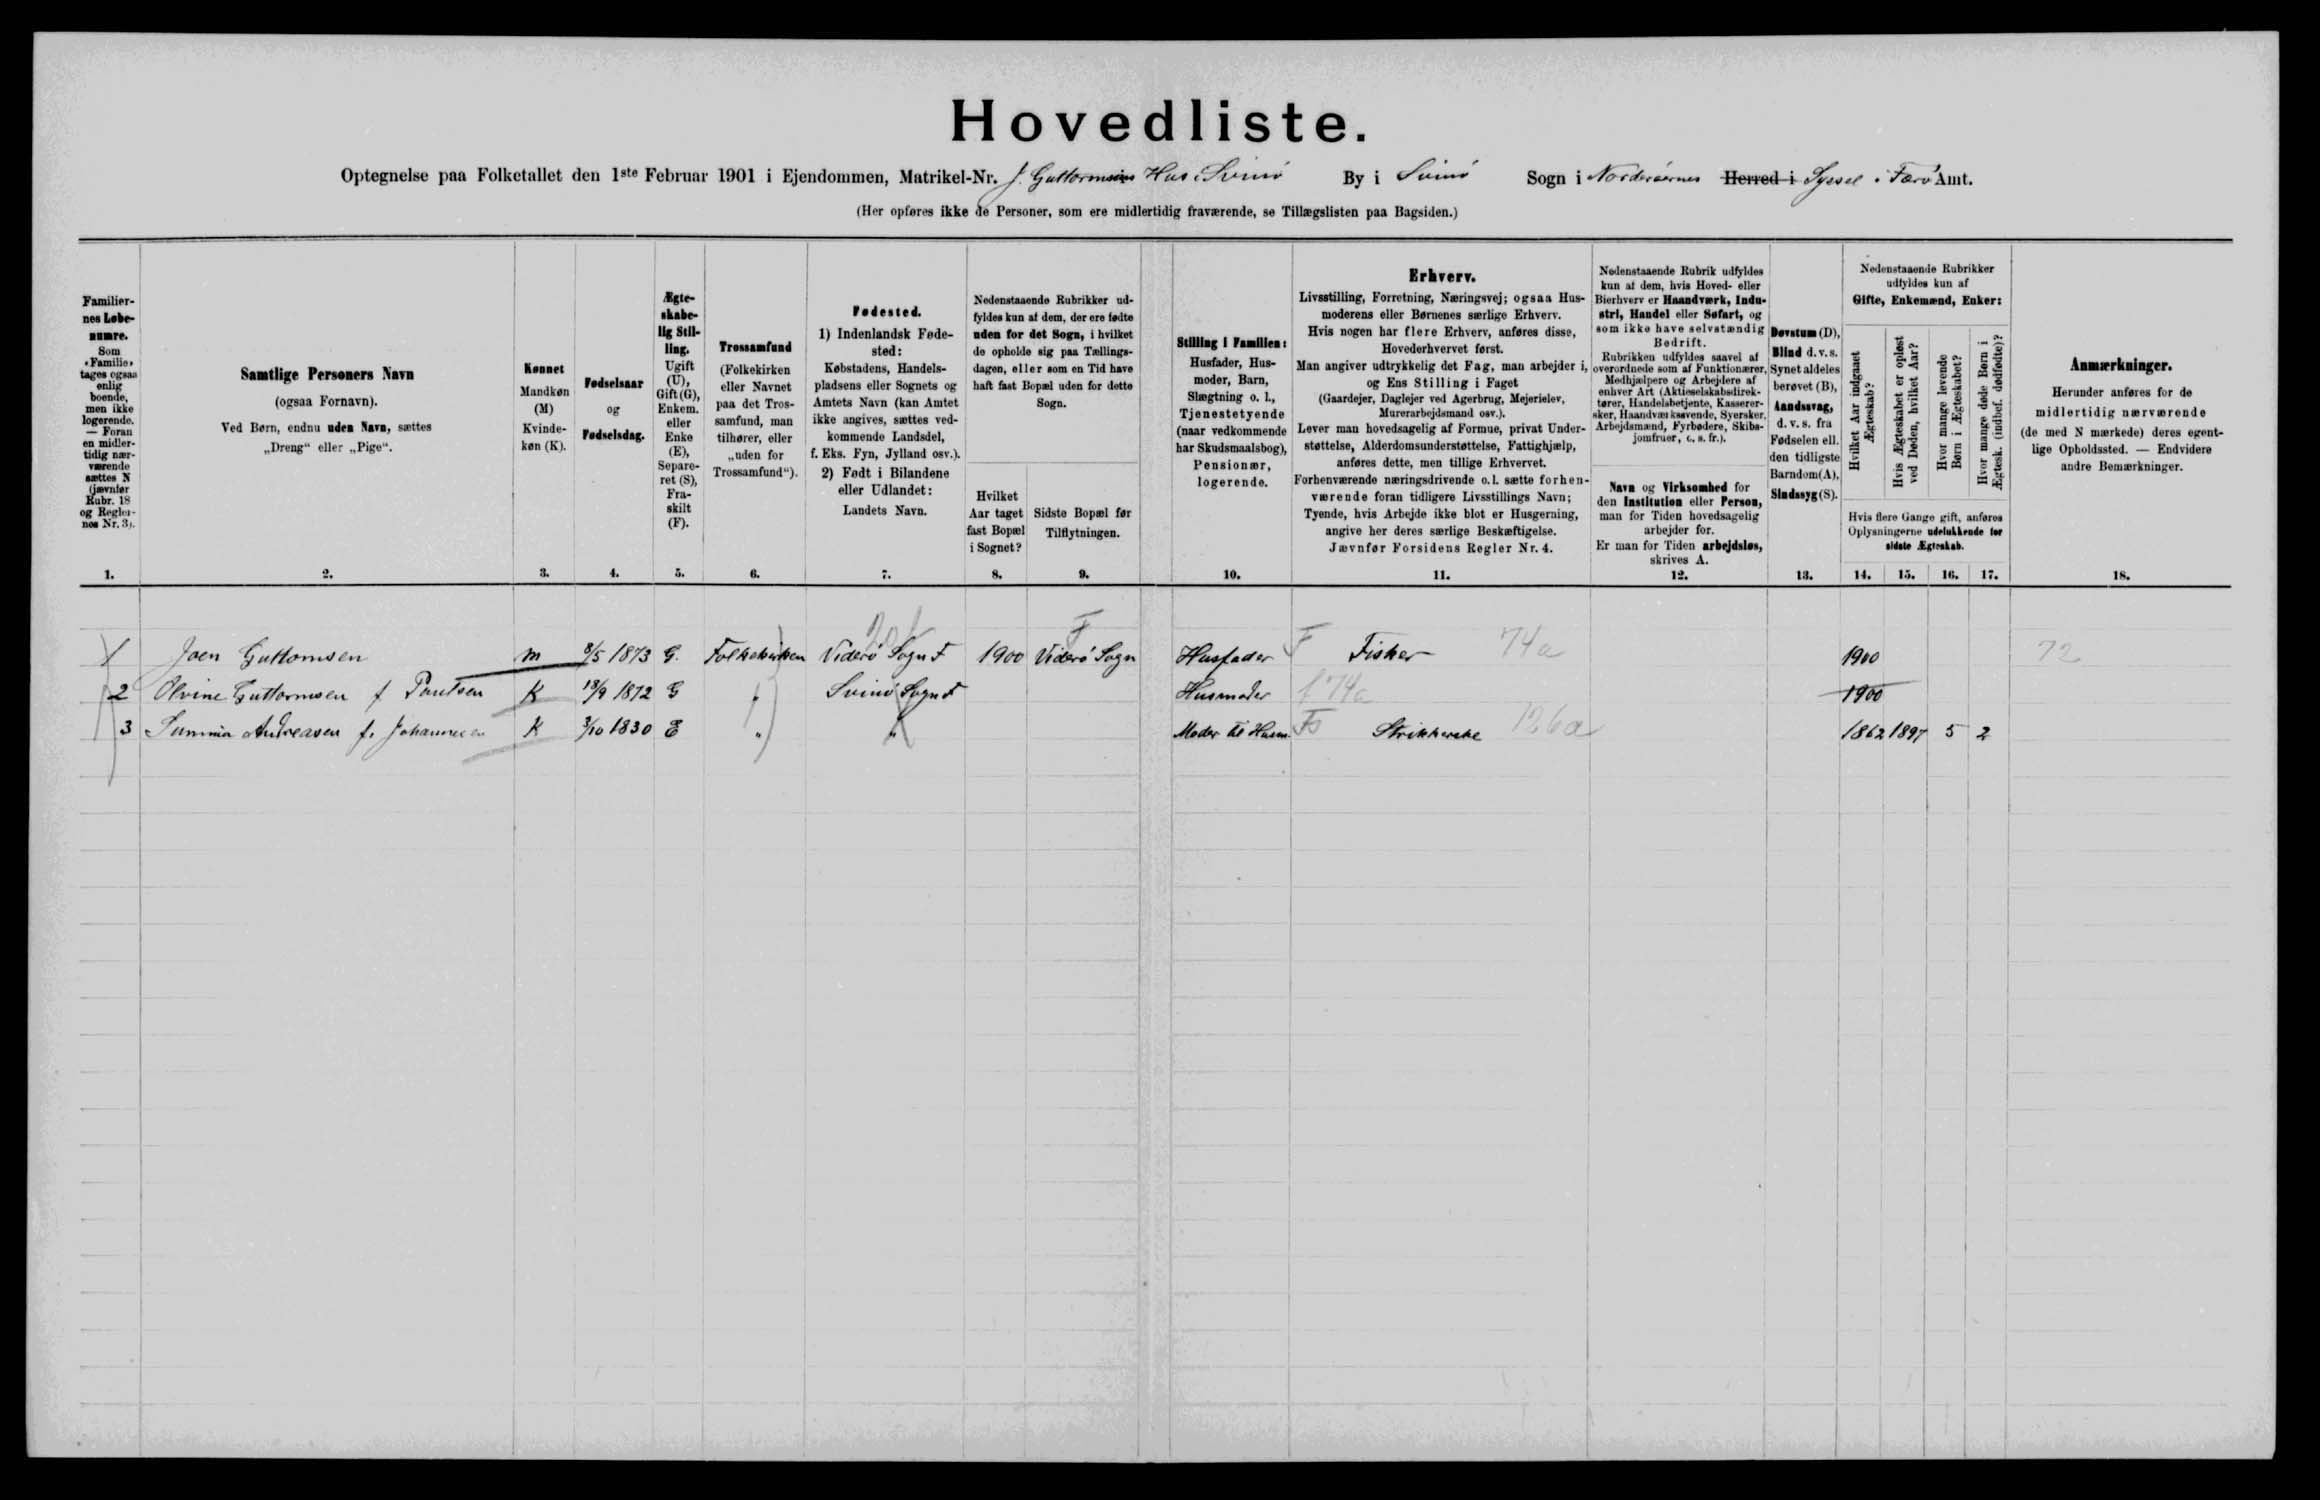 Hovedliste.
Optegnelse paa Folketallet den 1ste Februar 1901 i Ejendommen, Matrikel-Nr. J. Guttormsens Hus i Svinö By i Svinö Sogn i Norderöernes Herred i Syssel i Færö Amt.
(Her opføres ikke de Personer, som ere midlertidig fraværende, se Tillægslisten paa Bagsiden.)
Familier-
nes Løbe-
numre.
Som
«Familie»
tages ogsaa
enlig
boende,
men ikke
logerende.
— Foran
en midler-
tidig nær-
værende
sættes N
(jævnfør
Rubr. 18
og Regler-
nes Nr. 3).
1.
Samtlige Personers Navn
(ogsaa Fornavn).
Ved Børn, endnu uden Navn, sættes
„Dreng“ eller „Pige“.
2.
Kønnet
Mandkøn
(M)
Kvinde-
køn (K).
3.
Fødselsaar
og
Fødselsdag.
4.
Ægte-
skabe-
lig Stil-
ling.
Ugift
(U),
Gift (G),
Enkem.
eller
Enke
(E),
Separe-
ret (S),
Fra-
skilt
(F).
5.
Trossamfund
(Folkekirken
eller Navnet
paa det Tros-
samfund, man
tilhører, eller
„uden for
Trossamfund“).
6.
Fødested.
1) Indenlandsk Føde-
sted:
Købstadens, Handels-
pladsens eller Sognets og
Amtets Navn (kan Amtet
ikke angives, sættes ved-
kommende Landsdel,
f. Eks. Fyn, Jylland osv.).
2) Født i Bilandene
eller Udlandet:
Landets Navn.
7.
Nedenstaaende Rubrikker ud-
fyldes kun af dem, der ere fødte
uden for det Sogn, i hvilket
de opholde sig paa Tællings-
dagen, eller som en Tid have
haft fast Bopæl uden for dette
Sogn.
Hvilket
Aar taget
fast Bopæl
i Sognet?
8.
Sidste Bopæl før
Tilflytningen.
9.
Stilling i Familien:
Husfader, Hus-
moder, Barn,
Slægtning o. l.,
Tjenestetyende
(naar vedkommende
har Skudsmaalsbog),
Pensionær,
logerende.
10.
Erhverv.
Livsstilling, Forretning, Næringsvej; ogsaa Hus-
moderens eller Børnenes særlige Erhverv.
Hvis nogen har flere Erhverv, anføres disse,
Hovederhvervet først.
Man angiver udtrykkelig det Fag, man arbejder i,
og Ens Stilling i Faget
(Gaardejer, Daglejer ved Agerbrug, Mejerielev,
Murerarbejdsmand osv.).
Lever man hovedsagelig af Formue, privat Under-
støttelse, Alderdomsunderstøttelse, Fattighjælp,
anføres dette, men tillige Erhvervet.
Forhenværende næringsdrivende o. l. sætte forhen-
værende foran tidligere Livsstillings Navn;
Tyende, hvis Arbejde ikke blot er Husgerning,
angive her deres særlige Beskæftigelse.
Jævnfør Forsidens Regler Nr. 4.
11.
Nedenstaaende Rubrik udfyldes
kun af dem, hvis Hoved- eller
Bierhverv er Haandværk, Indu-
stri, Handel eller Søfart, og
som ikke have selvstændig
Bedrift.
Rubrikken udfyldes saavel af
overordnede som af Funktionærer,
Medhjælpere og Arbejdere af
enhver Art (Aktieselskabsdirek-
tører, Handelsbetjente, Kasserer-
sker, Haandværkssvende, Syersker,
Arbejdsmænd, Fyrbødere, Skibs-
jomfruer, o. s. fr.).
Navn og Virksomhed for
den Institution eller Person,
man for Tiden hovedsagelig
arbejder for.
Er man for Tiden arbejdsløs,
skrives A.
12.
Døvstum (D),
Blind d. v. s.
Synet aldeles
berøvet (B),
Aandssvag,
d. v. s. fra
Fødselen ell.
den tidligste
Barndom (A),
Sindssyg (S).
13.
Nedenstaaende Rubrikker
udfyldes kun af
Gifte, Enkemænd, Enker:
Hvilket Aar indgaaet
Ægteskab?
Hvis Ægteskabet er opløst
ved Døden, hvilket Aar?
Hvor mange levende
Børn i Ægteskabet?
Hvor mange døde Børn i
Ægtesk. (indbef. dødfødte)?
Hvis flere Gange gift, anføres
Oplysningerne udelukkende for
sidste Ægteskab.
14. 15. 16. 17.
Anmærkninger.
Herunder anføres for de
midlertidig nærværende
(de med N mærkede) deres egent-
lige Opholdssted. — Endvidere
andre Bemærkninger.
18.
1 Joen Guttomsen m 8/5 1873 G. Folkekirken Viderö Sogn F 1900 Viderö Sogn F Husfader F Fisker 74a 1900 72
2 Olvine Guttormsen f Poulsen K 18/9 1872 G " Svinö Sogn F Husmoder f 74a 1900
3 Sunnia Andreasen f. Johannesen K 3/10 1830 E " " Moder til Husm. Fo Strikkerske 126a 1862 1897 5 2